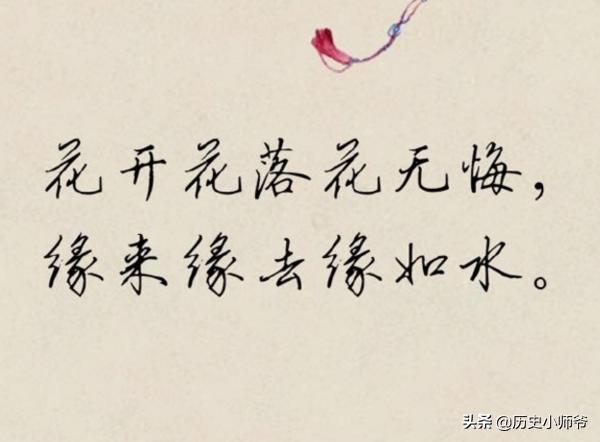 花开花落花无悔，
缘来缘去缘如水。
头条 @历史小师爷